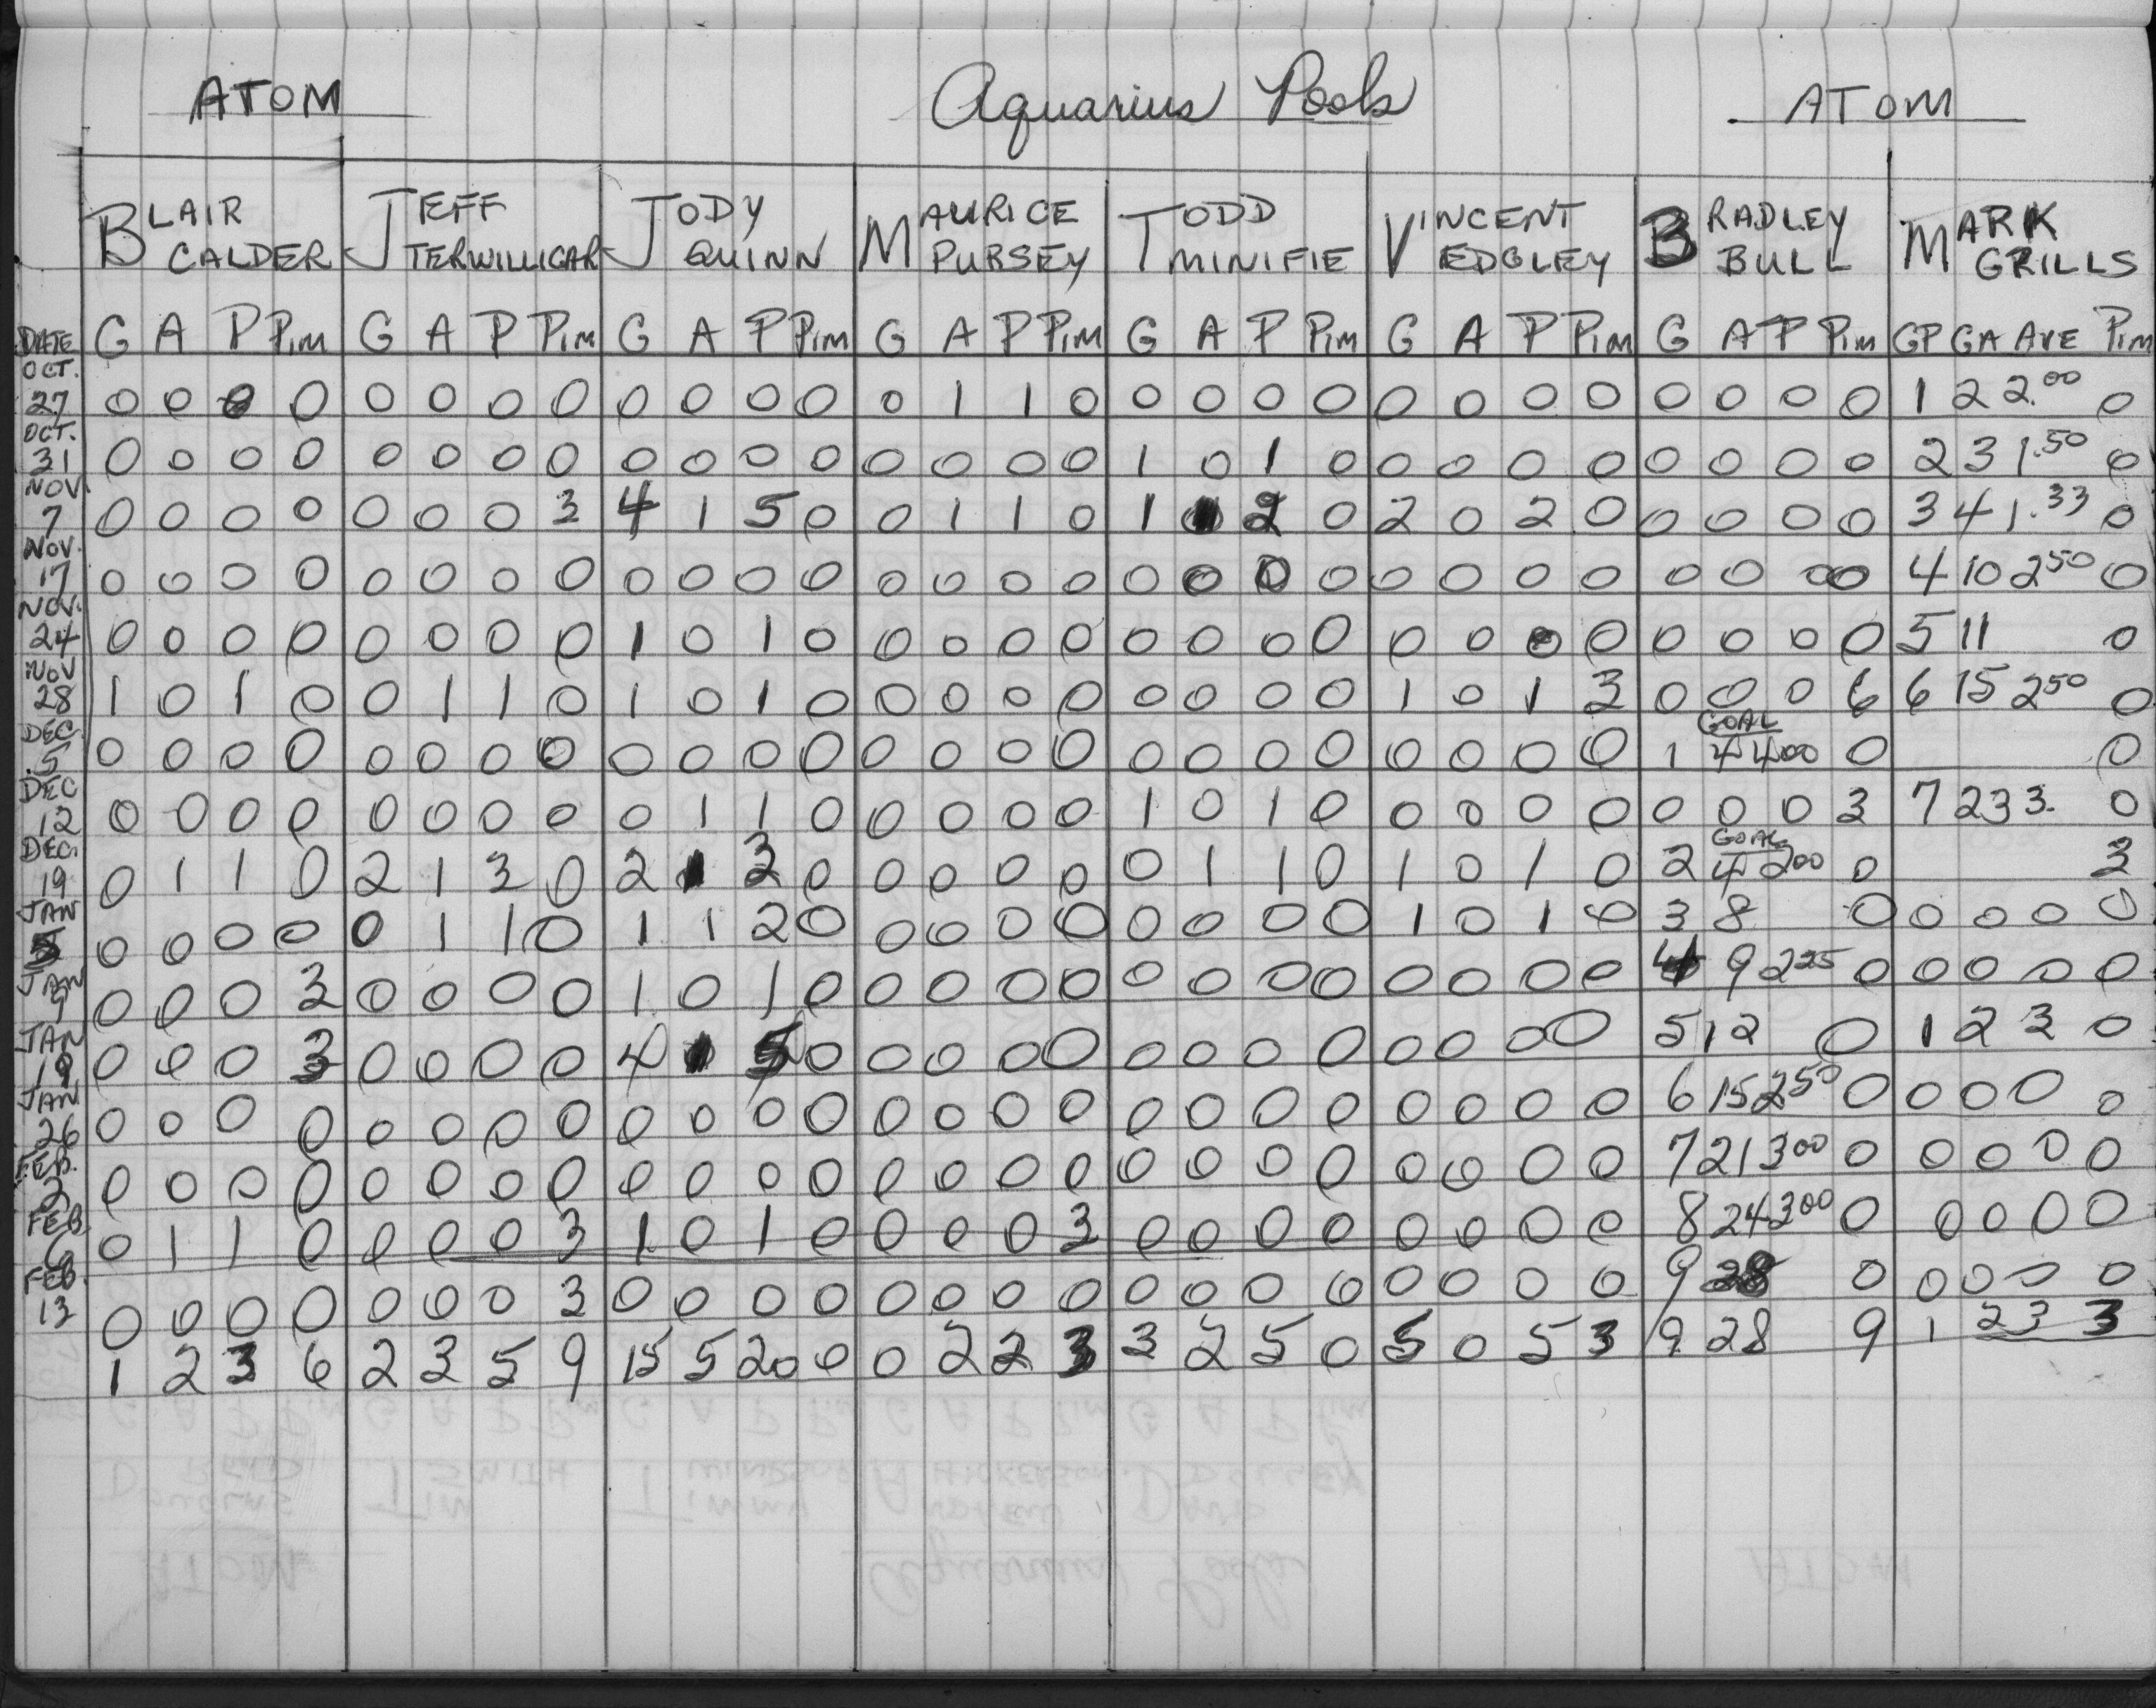 ATOM Aquarius Pools ATOM
BLAIR JEFF JODY MAURICE TODD VINCENT BRADLEY MARK
CALDER TERWILLIGAR QUINN PURSEY MINIFIE EDGLEY BULL GRILLS
DATE G A P PIM G A P PIM G A P PIM G A P PIM G A P PIM G A P PIM G A P PIM GP GA AVE PIM
OCT. 27 0 0 0 0 0 0 0 0 0 0 0 0 0 1 1 0 0 0 0 0 0 0 0 0 0 0 0 0 1 2 2.00 0
OCT. 31 0 0 0 0 0 0 0 0 0 0 0 0 0 0 0 0 1 0 1 0 0 0 0 0 0 0 0 0 2 3 1.50 0
NOV. 7 0 0 0 0 0 0 0 3 4 1 5 0 0 1 1 0 1 1 2 0 2 0 2 0 0 0 0 0 3 4 1.33 0
NOV. 17 0 0 0 0 0 0 0 0 0 0 0 0 0 0 0 0 0 0 0 0 0 0 0 0 0 0 0 0 4 10 250 0
NOV. 24 0 0 0 0 0 0 0 0 1 0 1 0 0 0 0 0 0 0 0 0 0 0 0 0 0 0 0 0 5 11 0
NOV 28 1 0 1 0 0 1 1 0 1 0 1 0 0 0 0 0 0 0 0 0 1 0 1 3 0 0 0 6 6 15 250 0
GOAL
DEC. 5 0 0 0 0 0 0 0 0 0 0 0 0 0 0 0 0 0 0 0 0 0 0 0 0 1 4 400 0 0
DEC 12 0 0 0 0 0 0 0 0 0 1 1 0 0 0 0 0 1 0 1 0 0 0 0 0 0 0 0 3 7 23 3. 0
GOAL
DEC. 19 0 1 1 0 2 1 3 0 2 1 3 0 0 0 0 0 0 1 1 0 1 0 1 0 2 4 200 0 3
JAN 5 0 0 0 0 0 1 1 0 1 1 2 0 0 0 0 0 0 0 0 0 1 0 1 0 3 8 0 0 0 0 0
JAN 9 0 0 0 3 0 0 0 0 1 0 1 0 0 0 0 0 0 0 0 0 0 0 0 0 4 9 225 0 0 0 0 0
JAN 19 0 0 0 3 0 0 0 0 4 1 5 0 0 0 0 0 0 0 0 0 0 0 0 0 5 12 0 1 2 2 0
JAN. 26 0 0 0 0 0 0 0 0 0 0 0 0 0 0 0 0 0 0 0 0 0 0 0 0 6 15 250 0 0 0 0 0
FEB. 2 0 0 0 0 0 0 0 0 0 0 0 0 0 0 0 0 0 0 0 0 0 0 0 0 7 21 300 0 0 0 0 0
FEB 6 0 1 1 0 0 0 0 3 1 0 1 0 0 0 0 3 0 0 0 0 0 0 0 0 8 24 300 0 0 0 0 0
FEB. 13 0 0 0 0 0 0 0 3 0 0 0 0 0 0 0 0 0 0 0 0 0 0 0 0 9 28 0 0 0 0 0
1 2 3 6 2 3 5 9 15 5 20 0 0 2 2 3 3 2 5 0 5 0 5 3 9 28 9 1 23 3